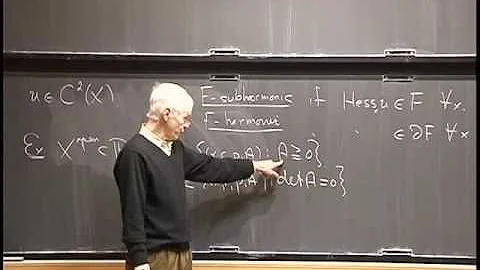 u ∈ C²(X) F-subharmonic if Hessₓu ∈ F ∀x.
F-harmonic ∈ ∂F ∀x
Ex X open ⊂ ; A ≧ 0}
det A = 0}